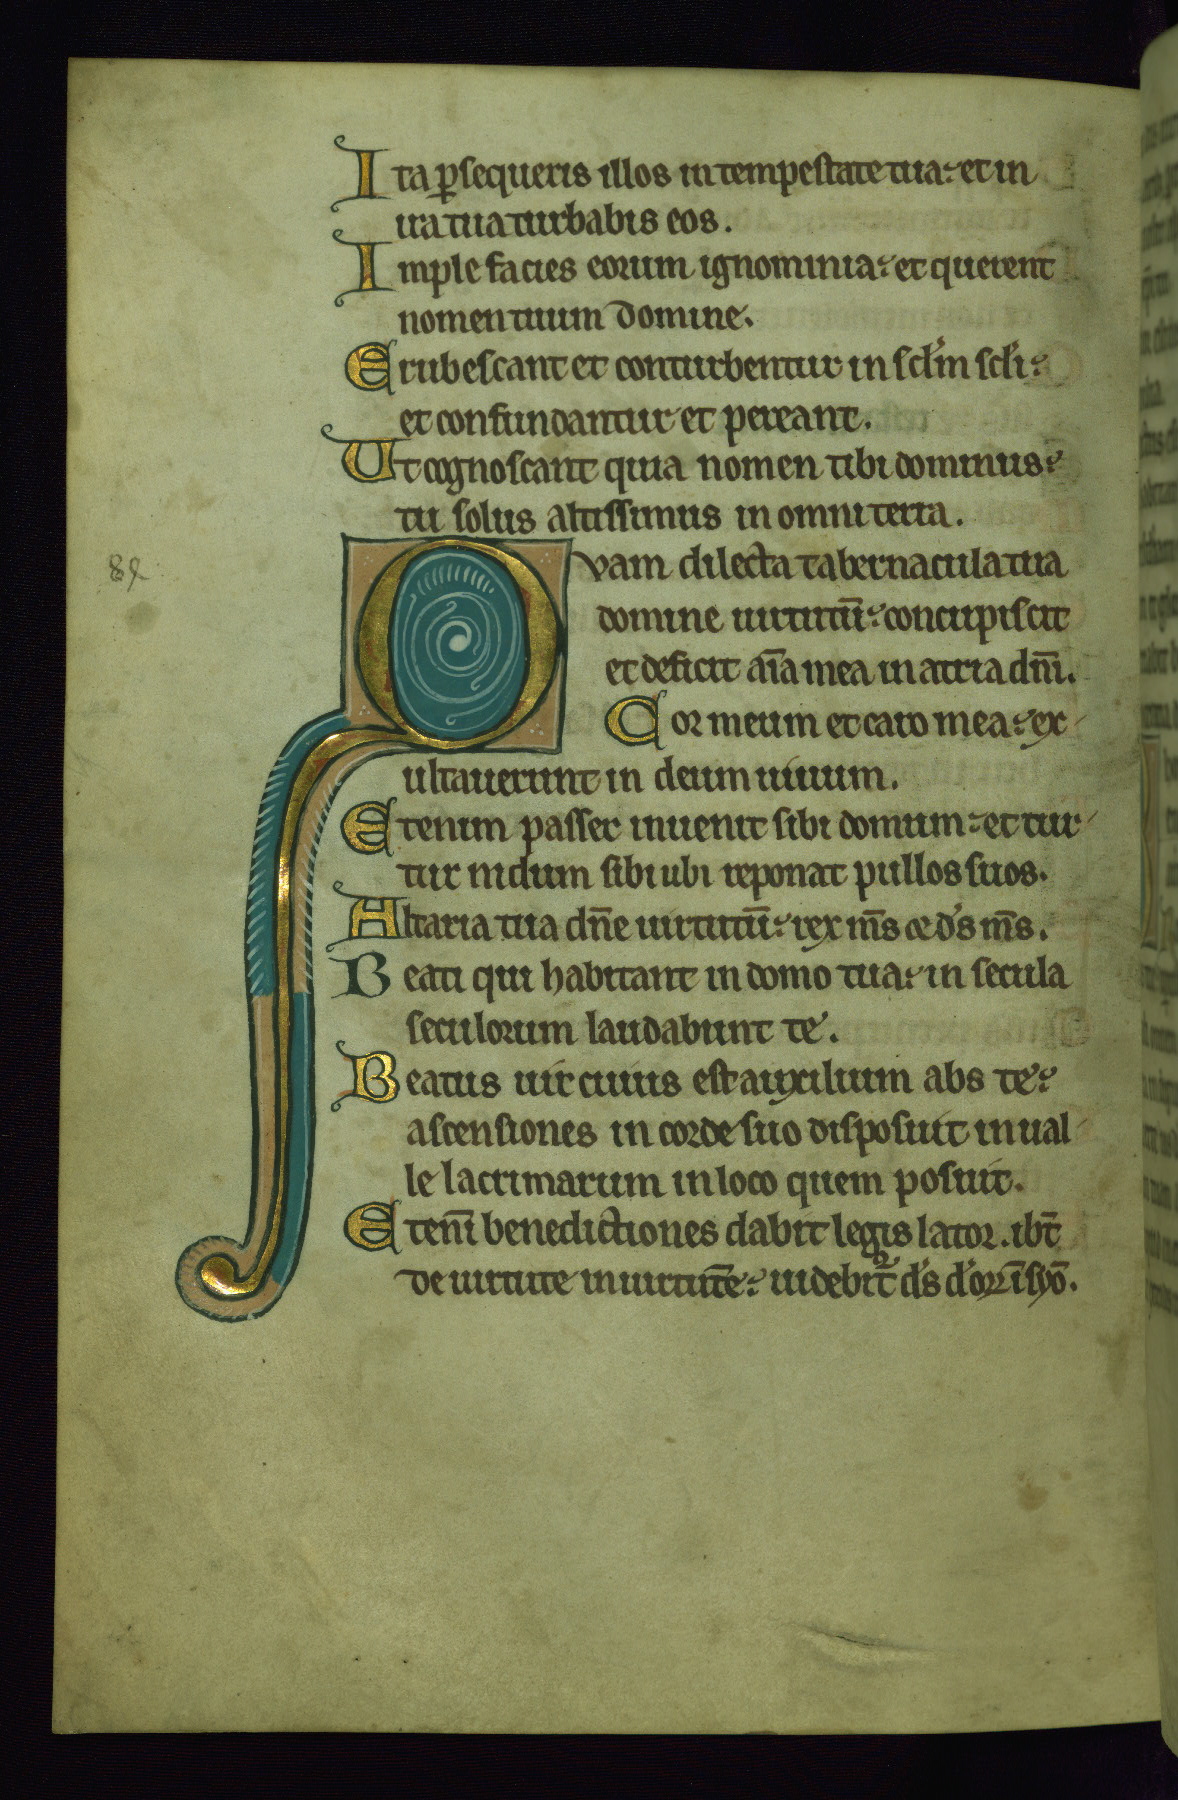 Ita ꝑsequeris illos in tempestate tua: et in
ira tua turbabis eos.
Imple facies eorum ignominia: et querent
nomen tuum domine.
Erubescant et conturbentur in scl'm scl'i:
et confundantur et pereant.
Ut cognoscant quia nomen tibi dominus:
tu solus altissimus in omni terra.
Quam dilecta tabernacula tua
domine uirtutū: concupiscit
et deficit aīa mea in atria dnī.
Cor meum et caro mea: ex
ultauerunt in deum uiuum.
Etenim passer inuenit sibi domum: et tur
tur nidum sibi ubi reponat pullos suos.
Altaria tua dn̄e uirtutū: rex m̄s et d's m̄s.
Beati qui habitant in domo tua: in secula
seculorum laudabunt te.
Beatus uir cuius est auxilium abs te:
ascensiones in corde suo disposuit in ual
le lacrimarum in loco quem posuit.
Etenī benedictiones dabit legis lator. ibt̄
de uirtute in uirtutē: uidebit᷑ d's d'orꝝ ī syō.